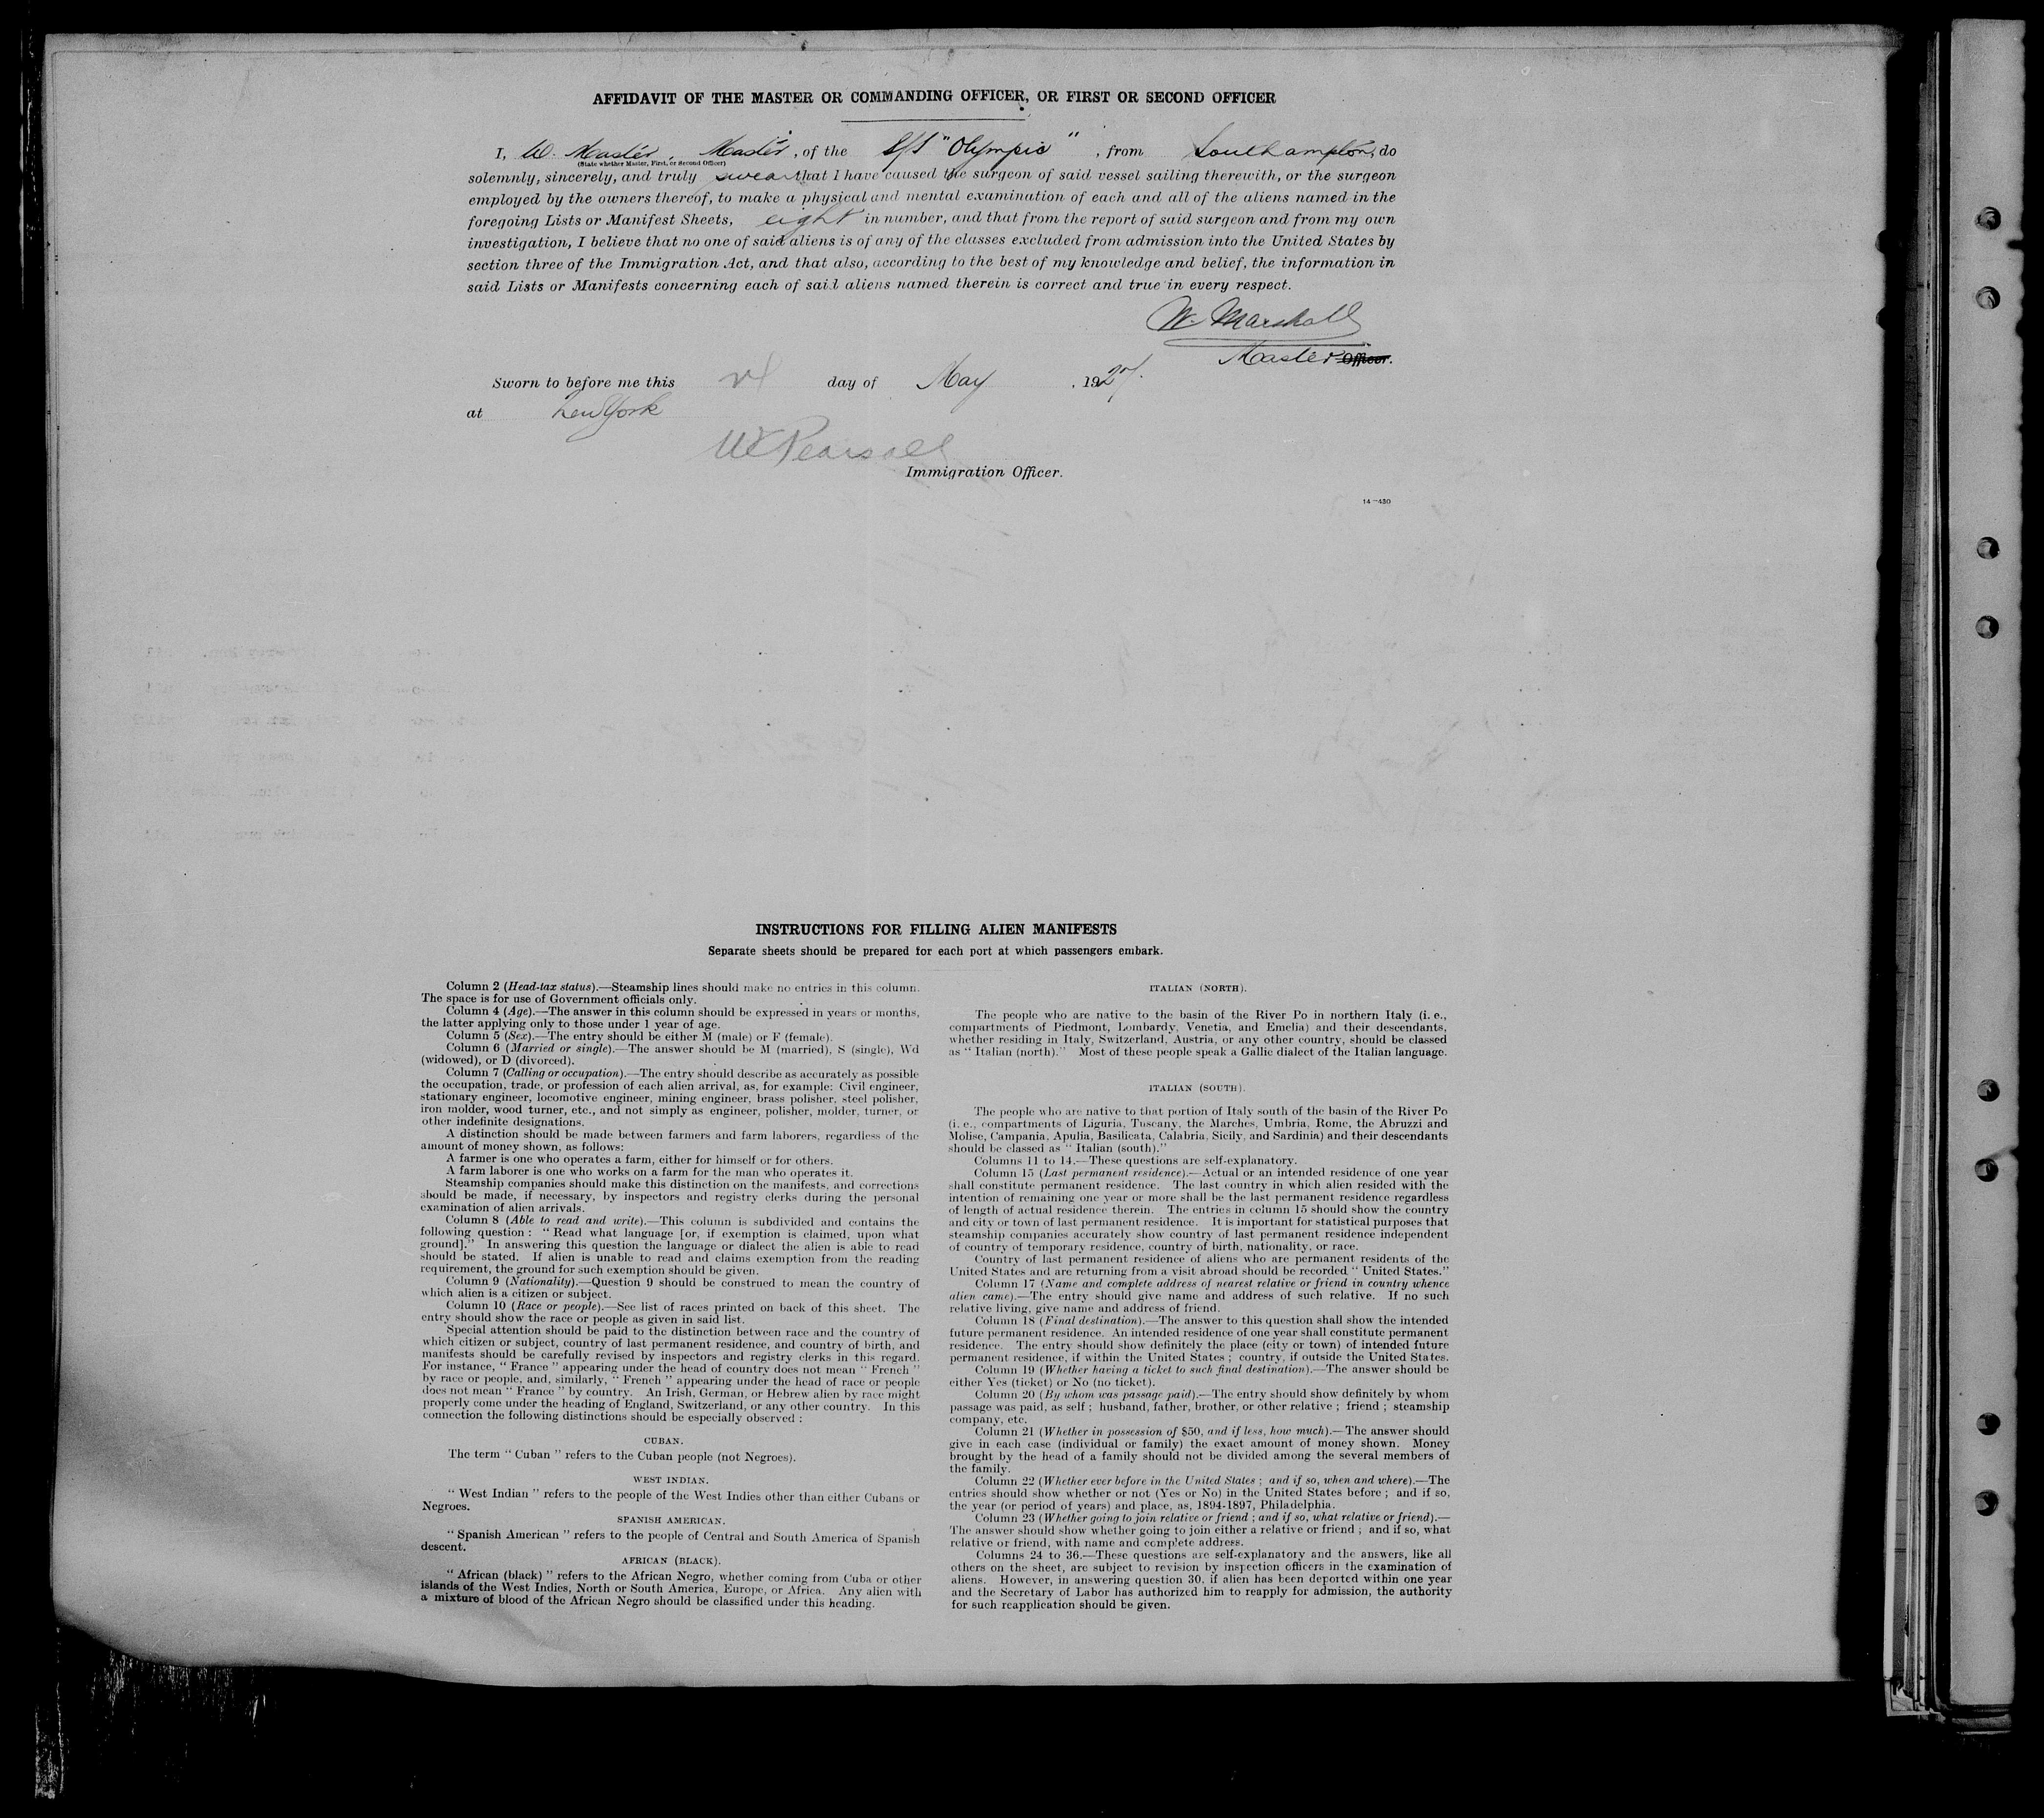 AFFIDAVIT OF THE MASTER OR COMMANDING OFFICER, OR FIRST OR SECOND OFFICER
I, W. Master, Master, of the S/S "Olympic", from Southampton, do
(State whether Master, First, or Second Officer)
solemnly, sincerely, and truly swear that I have caused the surgeon of said vessel sailing therewith, or the surgeon
employed by the owners thereof, to make a physical and mental examination of each and all of the aliens named in the
foregoing Lists or Manifest Sheets, eight in number, and that from the report of said surgeon and from my own
investigation, I believe that no one of said aliens is of any of the classes excluded from admission into the United States by
section three of the Immigration Act, and that also, according to the best of my knowledge and belief, the information in
said Lists or Manifests concerning each of said aliens named therein is correct and true in every respect.
W. Marshall
Master Officer.
Sworn to before me this day of May, 1927.
at New York
WC Pearsall
Immigration Officer.
14-430
INSTRUCTIONS FOR FILLING ALIEN MANIFESTS
Separate sheets should be prepared for each port at which passengers embark.
Column 2 (Head-tax status).—Steamship lines should make no entries in this column.
The space is for use of Government officials only.
Column 4 (Age).—The answer in this column should be expressed in years or months,
the latter applying only to those under 1 year of age.
Column 5 (Sex).—The entry should be either M (male) or F (female).
Column 6 (Married or single).—The answer should be M (married), S (single), Wd
(widowed), or D (divorced).
Column 7 (Calling or occupation).—The entry should describe as accurately as possible
the occupation, trade, or profession of each alien arrival, as, for example: Civil engineer,
stationary engineer, locomotive engineer, mining engineer, brass polisher, steel polisher,
iron molder, wood turner, etc., and not simply as engineer, polisher, molder, turner, or
other indefinite designations.
A distinction should be made between farmers and farm laborers, regardless of the
amount of money shown, as follows:
A farmer is one who operates a farm, either for himself or for others.
A farm laborer is one who works on a farm for the man who operates it.
Steamship companies should make this distinction on the manifests, and corrections
should be made, if necessary, by inspectors and registry clerks during the personal
examination of alien arrivals.
Column 8 (Able to read and write).—This column is subdivided and contains the
following question: "Read what language [or, if exemption is claimed, upon what
ground]." In answering this question the language or dialect the alien is able to read
should be stated. If alien is unable to read and claims exemption from the reading
requirement, the ground for such exemption should be given.
Column 9 (Nationality).—Question 9 should be construed to mean the country of
which alien is a citizen or subject.
Column 10 (Race or people).—See list of races printed on back of this sheet. The
entry should show the race or people as given in said list.
Special attention should be paid to the distinction between race and the country of
which citizen or subject, country of last permanent residence, and country of birth, and
manifests should be carefully revised by inspectors and registry clerks in this regard.
For instance, "France" appearing under the head of country does not mean "French"
by race or people, and, similarly, "French" appearing under the head of race or people
does not mean "France" by country. An Irish, German, or Hebrew alien by race might
properly come under the heading of England, Switzerland, or any other country. In this
connection the following distinctions should be especially observed:
CUBAN.
The term "Cuban" refers to the Cuban people (not Negroes).
WEST INDIAN.
"West Indian" refers to the people of the West Indies other than either Cubans or
Negroes.
SPANISH AMERICAN.
"Spanish American" refers to the people of Central and South America of Spanish
descent.
AFRICAN (BLACK).
"African (black)" refers to the African Negro, whether coming from Cuba or other
islands of the West Indies, North or South America, Europe, or Africa. Any alien with
a mixture of blood of the African Negro should be classified under this heading.
ITALIAN (NORTH).
The people who are native to the basin of the River Po in northern Italy (i. e.,
compartments of Piedmont, Lombardy, Venetia, and Emelia) and their descendants,
whether residing in Italy, Switzerland, Austria, or any other country, should be classed
as "Italian (north)." Most of these people speak a Gallic dialect of the Italian language.
ITALIAN (SOUTH).
The people who are native to that portion of Italy south of the basin of the River Po
(i. e., compartments of Liguria, Tuscany, the Marches, Umbria, Rome, the Abruzzi and
Molise, Campania, Apulia, Basilicata, Calabria, Sicily, and Sardinia) and their descendants
should be classed as "Italian (south)."
Columns 11 to 14.—These questions are self-explanatory.
Column 15 (Last permanent residence).—Actual or an intended residence of one year
shall constitute permanent residence. The last country in which alien resided with the
intention of remaining one year or more shall be the last permanent residence regardless
of length of actual residence therein. The entries in column 15 should show the country
and city or town of last permanent residence. It is important for statistical purposes that
steamship companies accurately show country of last permanent residence independent
of country of temporary residence, country of birth, nationality, or race.
Country of last permanent residence of aliens who are permanent residents of the
United States and are returning from a visit abroad should be recorded "United States."
Column 17 (Name and complete address of nearest relative or friend in country whence
alien came).—The entry should give name and address of such relative. If no such
relative living, give name and address of friend.
Column 18 (Final destination).—The answer to this question shall show the intended
future permanent residence. An intended residence of one year shall constitute permanent
residence. The entry should show definitely the place (city or town) of intended future
permanent residence, if within the United States; country, if outside the United States.
Column 19 (Whether having a ticket to such final destination).—The answer should be
either Yes (ticket) or No (no ticket).
Column 20 (By whom was passage paid).—The entry should show definitely by whom
passage was paid, as self; husband, father, brother, or other relative; friend; steamship
company, etc.
Column 21 (Whether in possession of $50, and if less, how much).—The answer should
give in each case (individual or family) the exact amount of money shown. Money
brought by the head of a family should not be divided among the several members of
the family.
Column 22 (Whether ever before in the United States; and if so, when and where).—The
entries should show whether or not (Yes or No) in the United States before; and if so,
the year (or period of years) and place, as, 1894-1897, Philadelphia.
Column 23 (Whether going to join relative or friend; and if so, what relative or friend).—
The answer should show whether going to join either a relative or friend; and if so, what
relative or friend, with name and complete address.
Columns 24 to 36.—These questions are self-explanatory and the answers, like all
others on the sheet, are subject to revision by inspection officers in the examination of
aliens. However, in answering question 30, if alien has been deported within one year
and the Secretary of Labor has authorized him to reapply for admission, the authority
for such reapplication should be given.